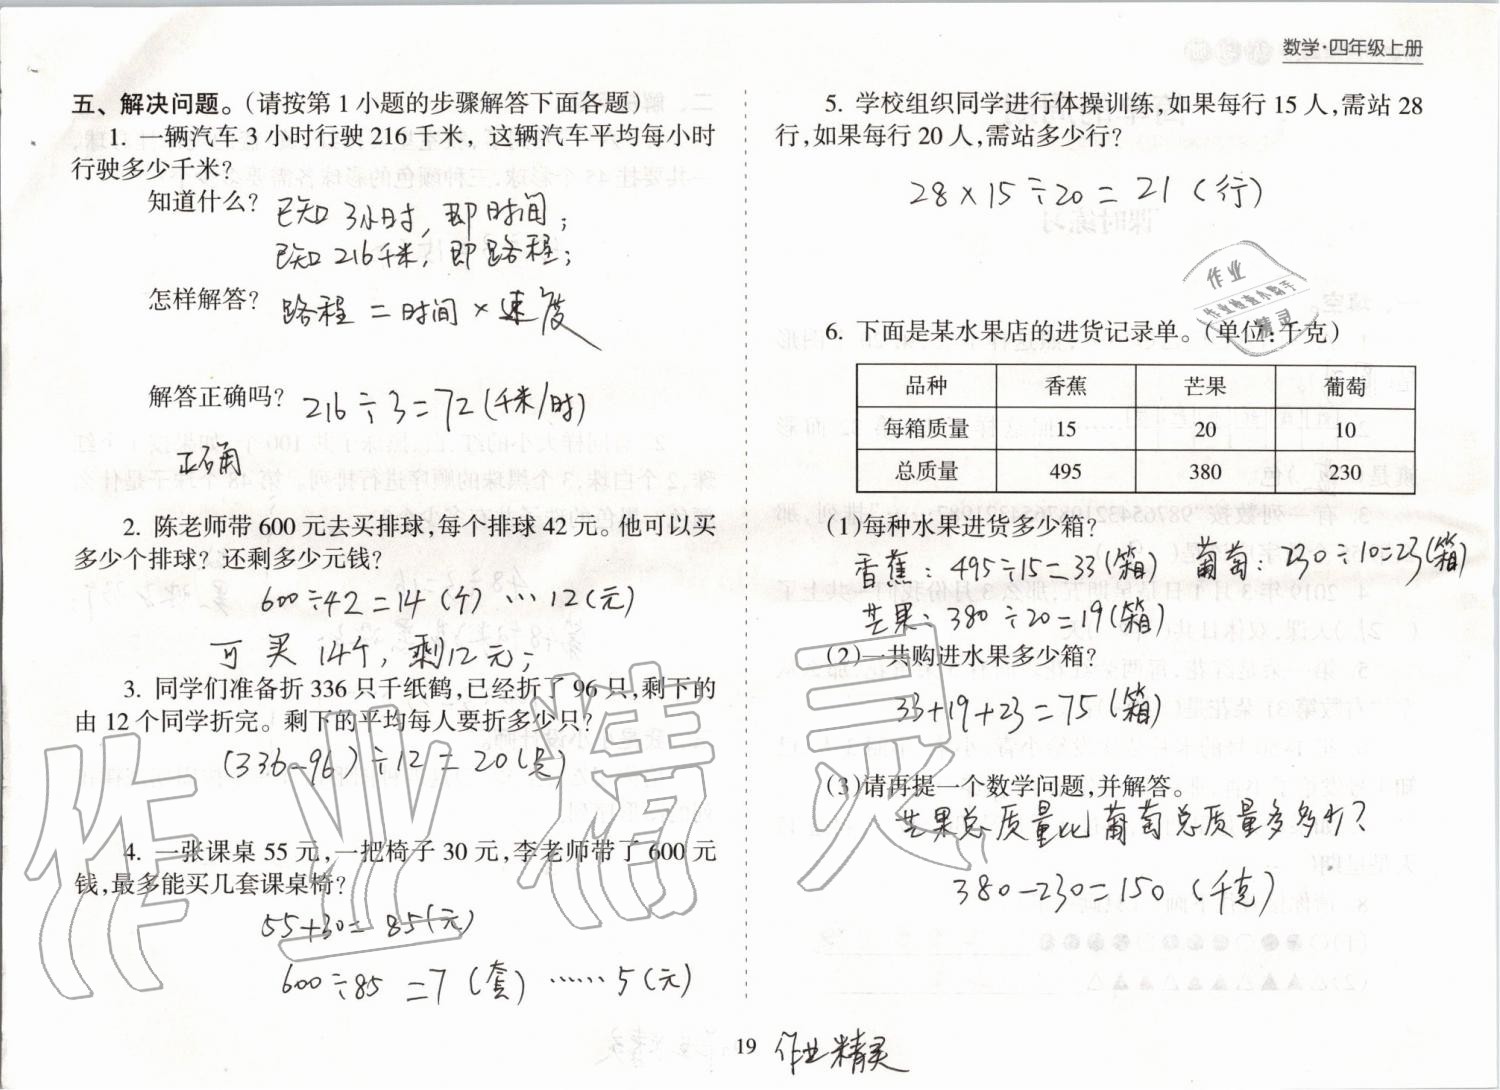 数学·四年级上册
五、解决问题。（请按第 1 小题的步骤解答下面各题）
1. 一辆汽车 3 小时行驶 216 千米，这辆汽车平均每小时
行驶多少千米？
知道什么？ 已知 3小时，即时间；
已知 216千米，即路程；
怎样解答？ 路程 = 时间 × 速度
解答正确吗？ 216÷3=72(千米/时)
正确
2. 陈老师带 600 元去买排球，每个排球 42 元。他可以买
多少个排球？还剩多少元钱？
600÷42=14(个)…12(元)
可买14个，剩12元；
3. 同学们准备折 336 只千纸鹤，已经折了 96 只，剩下的
由 12 个同学折完。剩下的平均每人要折多少只？
(336-96)÷12=20(只)
4. 一张课桌 55 元，一把椅子 30 元，李老师带了 600 元
钱，最多能买几套课桌椅？
55+30=85(元)
600÷85=7(套)……5(元)
5. 学校组织同学进行体操训练，如果每行 15 人，需站 28
行，如果每行 20 人，需站多少行？
28×15÷20=21(行)
作业
作业检查小助手
精灵
6. 下面是某水果店的进货记录单。（单位：千克）
品种 香蕉 芒果 葡萄
每箱质量 15 20 10
总质量 495 380 230
(1)每种水果进货多少箱？
香蕉：495÷15=33(箱) 葡萄：230÷10=23(箱)
芒果：380÷20=19(箱)
(2)一共购进水果多少箱？
33+19+23=75(箱)
(3)请再提一个数学问题，并解答。
芒果总质量比葡萄总质量多多少？
380-230=150(千克)
作业精灵
19 作业精灵